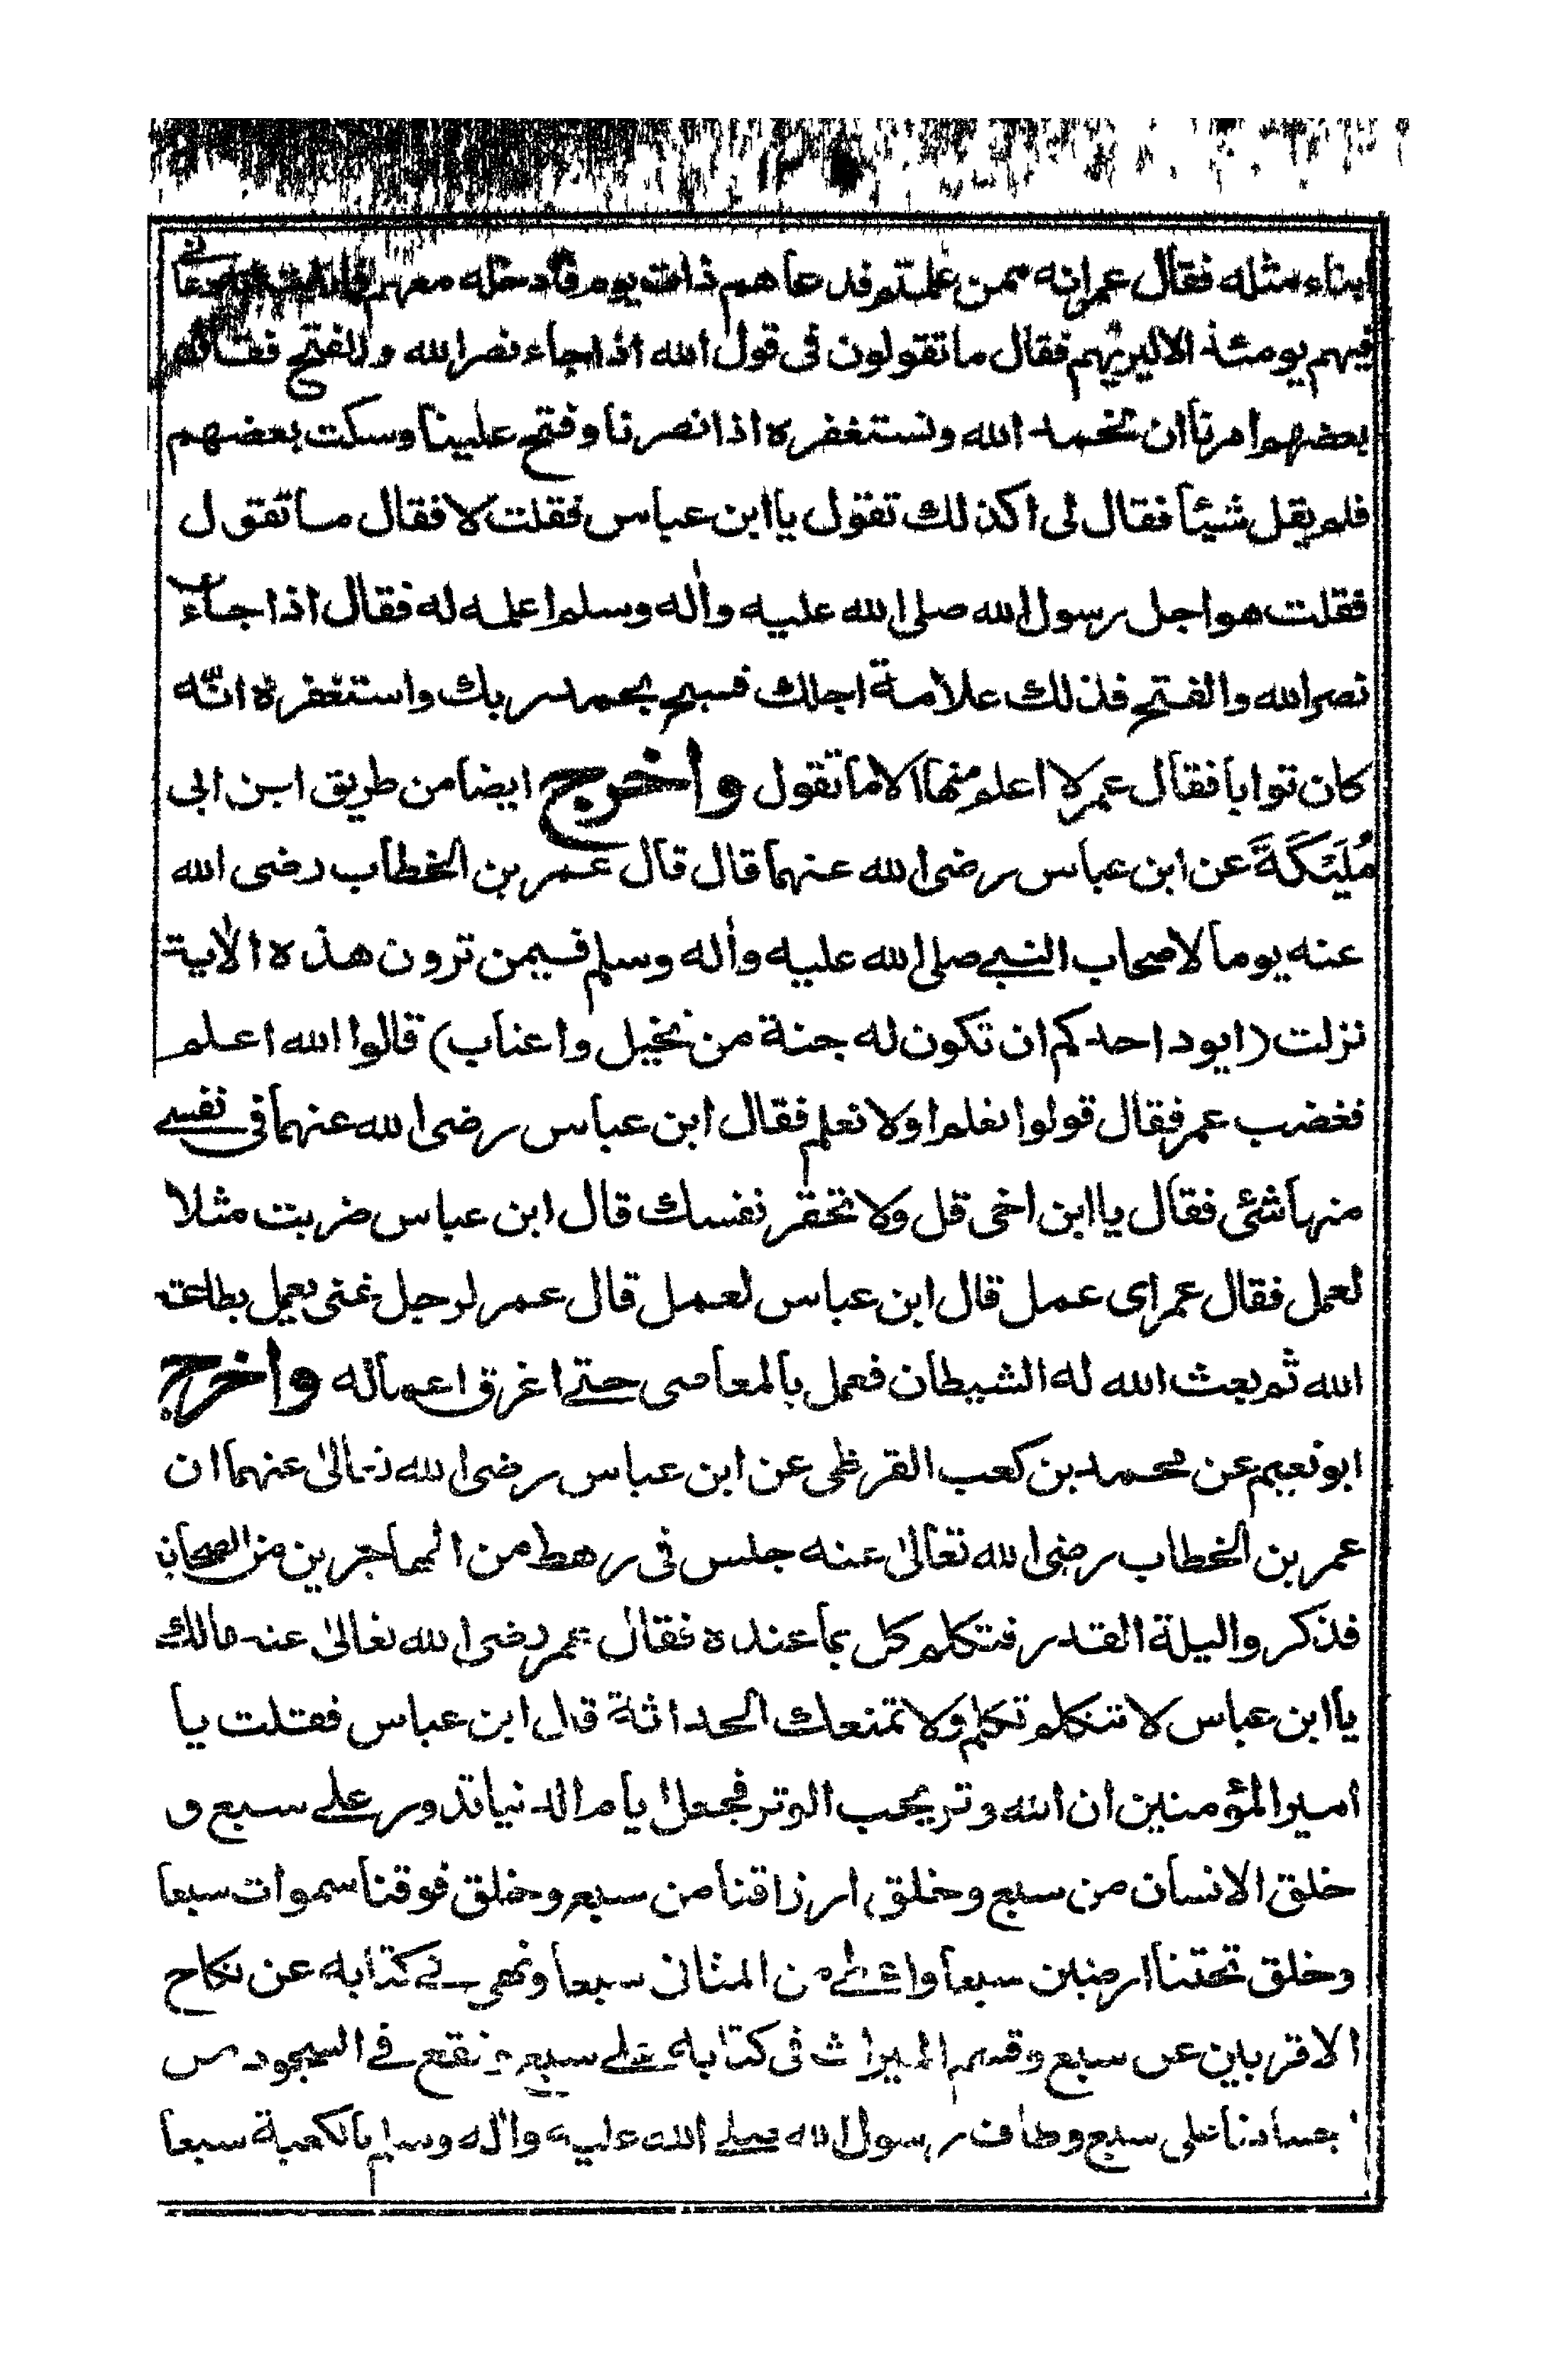 ابناء مثله فقال عمر انه ممن علمتم فدعاهم ذات يوم فادخله معهم
فيهم يومئذ الا ليريهم فقال ما تقولون فى قول الله اذا جاء نصر الله والفتح فقال
بعضهم امرنا ان نحمد الله ونستغفره اذا نصرنا وفتح علينا وسكت بعضهم
فلم يقل شيئا فقال لى اكذلك تقول يا ابن عباس فقلت لا فقال ما تقول
فقلت هو اجل رسول الله صلى الله عليه واٰله وسلم اعلمه له فقال اذا جاء
نصر الله والفتح فذلك علامة اجلك فسبح بحمد ربك واستغفره انّه
كان توابا فقال عمر لا اعلم منها الا ما تقول واخرج ايضا من طريق ابن ابى
مُلَيْكَةَ عن ابن عباس رضى الله عنهما قال قال عمر بن الخطاب رضى الله
عنه يوما لاصحاب النبى صلى الله عليه واٰله وسلم فيمن ترون هذه الاٰية
نزلت (ايود احدكم ان تكون له جنة من نخيل واعناب) قالوا الله اعلم
فغضب عمر فقال قولوا نعلم اولا نعلم فقال ابن عباس رضى الله عنهما فى نفسى
منها شئى فقال يا ابن اخى قل ولا تحقر نفسك قال ابن عباس ضربت مثلا
لعمل فقال عمر اى عمل قال ابن عباس لعمل قال عمر لرجل غنى يعمل بطاعة
الله ثم بعث الله له الشيطان فعمل بالمعاصى حتى اغرق اعماله واخرج
ابو نعيم عن محمد بن كعب القرظى عن ابن عباس رضى الله تعالىٰ عنهما ان
عمر بن الخطاب رضى الله تعالىٰ عنه جلس فى رهط من المهاجرين من الصحابة
فذكر واليلة القدر فتكلم كل بما عنده فقال عمر رضى الله تعالىٰ عنه مالك
يا ابن عباس لا تتكلم تكلم ولا تمنعك الحداثة قال ابن عباس فقلت يا
امير المؤمنين ان الله وتر يحب الوتر فجعل ايام الدنيا تدور على سبع و
خلق الانسان من سبع وخلق ارزاقنا من سبع وخلق فوقنا سموات سبعا
وخلق تحتنا ارضين سبعا واعطى من المثانى سبعا ونهى فى كتابه عن نكاح
الاقربين عن سبع وقسم الميراث فى كتابه على سبع ونقع فى السجود من
اجسادنا على سبع وطاف رسول الله صلى الله عليه واٰله وسلم بالكعبة سبعا